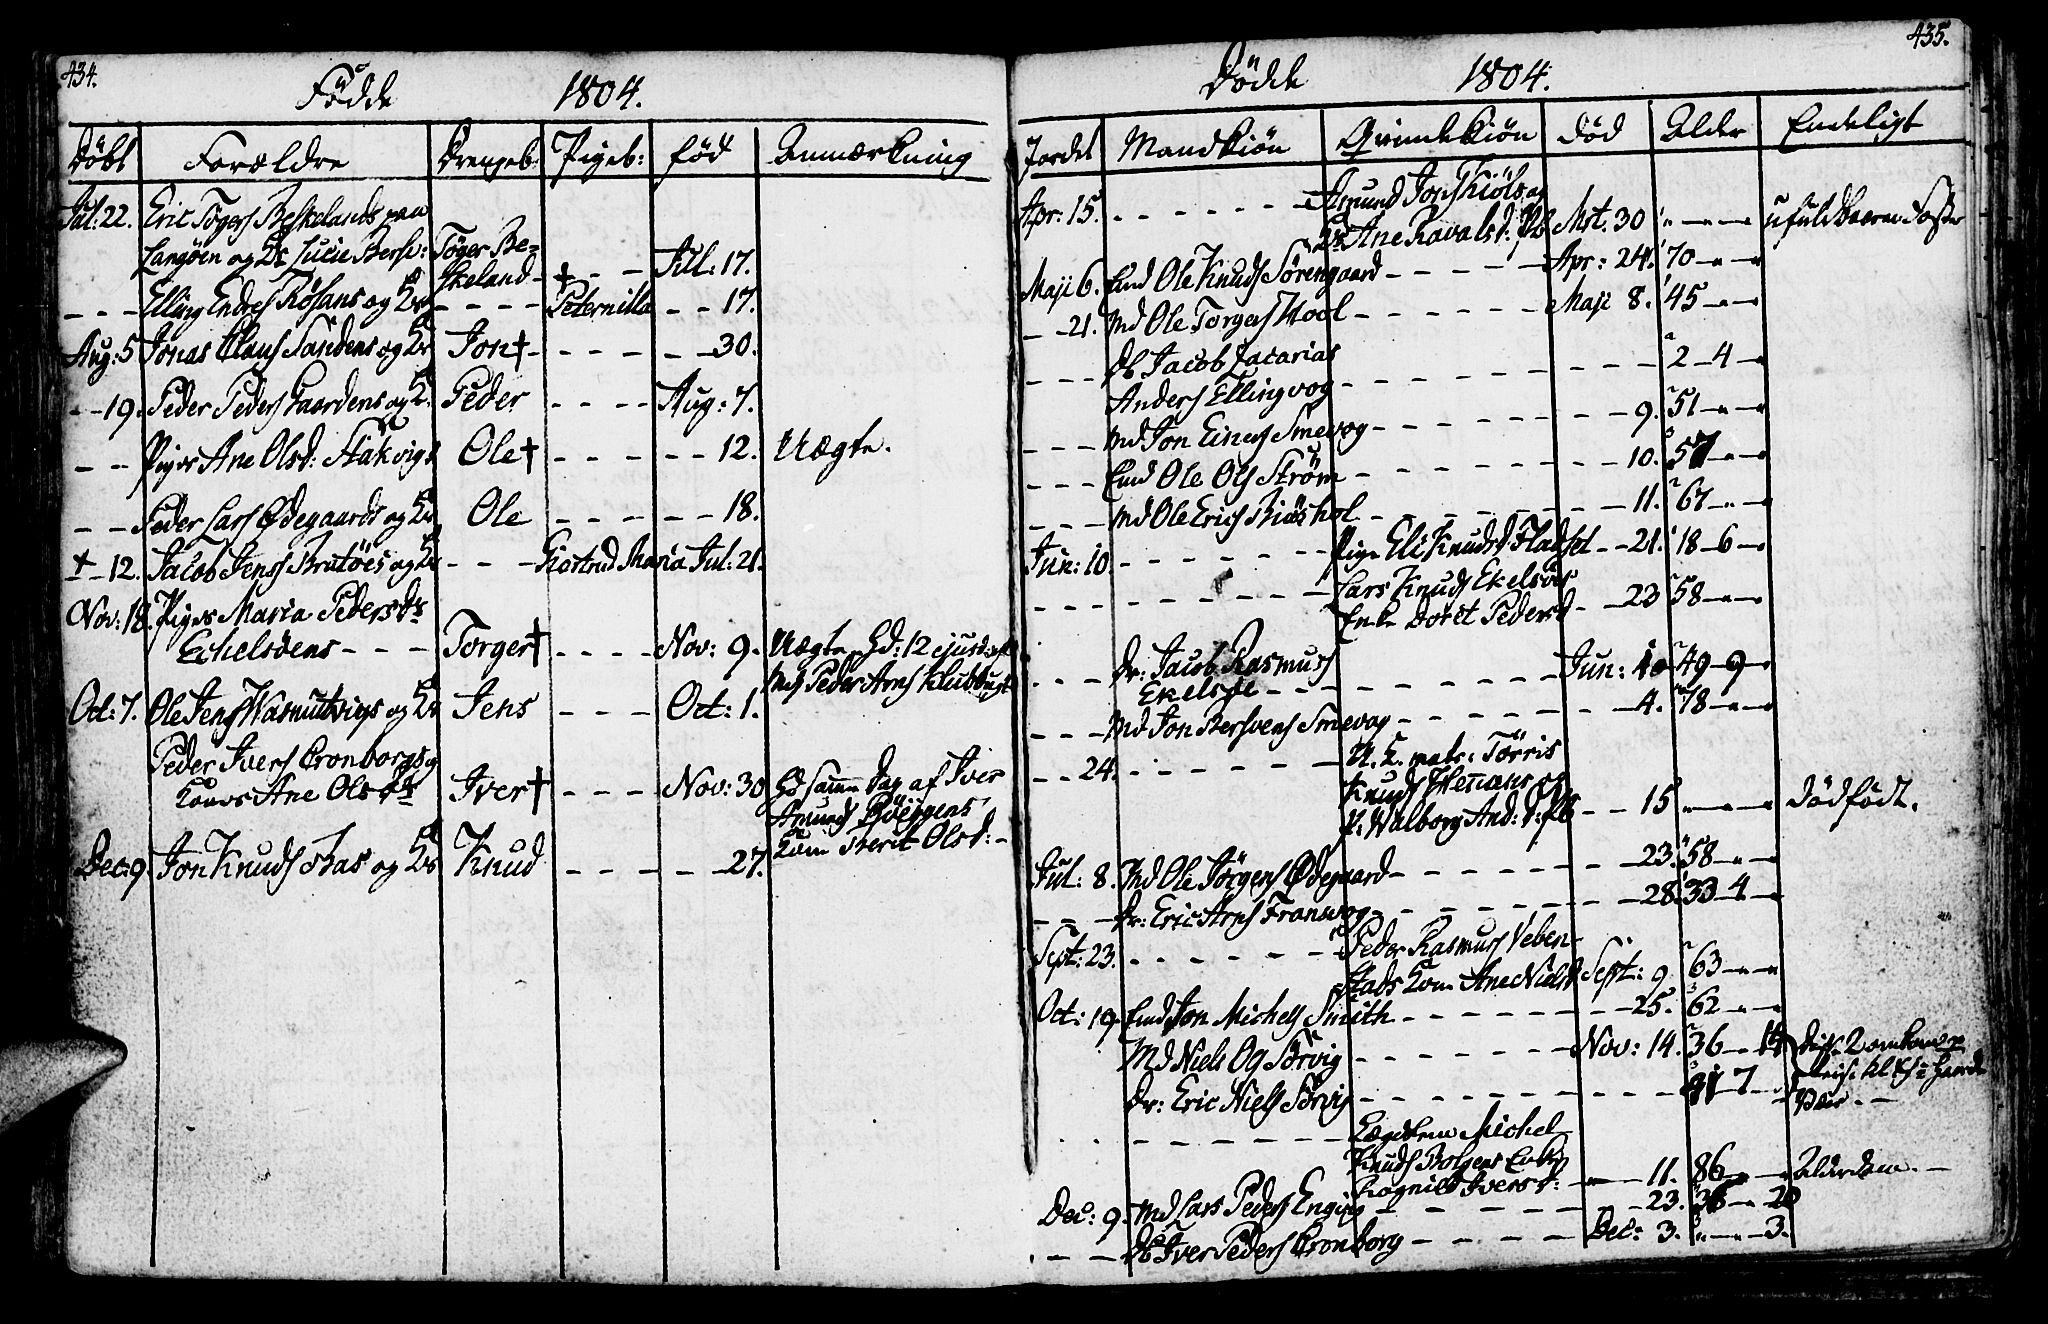 434.
Fødde 1804.
Døbt Forældre Drengeb: Pigeb: fød Anmærkning
Jul: 22. Eric Tøgers Beskelands paa
Langøen og Hr Lucie Bersv: Tøger Be-
skeland - † - - Jul: 17.
- - - Elling Endres Røsans og Hr - - - - Peternilla - - 17.
Aug: 5 Jonas Claus Sandens og Hr Jon † - - - - - - 30.
- - 19. Peder Peders Gaardens og Hr Peder - - - - Aug: 7.
- - Piges Ane Olsd: Stakvigs Ole † - - - - - - 12. Uægte.
- - Peder Lars Ødegaards og Hr Ole - - - - - - 18.
† - 12. Jacob Jens Brutøes og Hr - - - Giertrud Maria Jul: 21.
Nov: 18. Piges Maria Pedersdr
Echelsöens - - - Torger † - - - - Nov: 9. Uægte Hd: 12 ejusd af
Md Peder Arns Klubbugt
Oct: 7. Ole Jens Wasmutvigs og Hr Jens - - - Oct: 1.
Peder Ivers Cronborgs og
Kones Ane Olsdrs Iver † - - - Nov: 30 Hd samme Dag af Iver
Amunds Böeggens
Kone Berit Olsd: -
Dec: 9. Jon Knuds Bas og Hr Knud - - - - - - 27.
435.
Dödde 1804.
Jordet Mandkiön Qvindekiön död Alder Endeligt
Apr: 15. - - - - - - Amund Jons Kiöls og
Hr Ane Ravalsd: Pb Mrt. 30 - - - ufuldbaaren Foster
Maji 6. Emd Ole Knuds Sörengaard - - - - - Apr: 24. 70 - - -
- - 21. Md Ole Torgers Hool - - - - - - Maji 8. 45 - - -
- - - Db Jacob Zacarias
Anders Ellingvog - - - - - - - - - 2 - 4 -
- - - Md Jon Einers Smevog - - - - - - - - 9. 51 - - -
- - - Emd Ole Ols Ström - - - - - - - - 10. 57 - - -
- - - Md Ole Erics Biöshol - - - - - - - - 11. 67 - - -
Jun: 10. - - - - - - Pige Eli Knudsd Fladset - - 21. 18 - 6 -
- - - - - - - - - Lars Knuds Ekelsöes
Enke Doret Pedersd - - 23 58 - - -
- - - Dr: Jacob Rasmus
Ekelsöe - - - - - - - - - Jun: 10 49 - 9 -
- - - Md Jon Bersvens Smevog - - - - - - - 4. 78 - - -
- - 24. - - - - - - U. E. mats: Törris
Knuds Hemans og
P: Walborg And: d: Pb - - 15 - - - dödfödt.
Jul: 8. Md Ole Jörgens Ødegaard - - - - - - - 23. 58 - - -
- - - Dr: Eric Arns Fransvog - - - - - - - 28. 33 - 4 -
Sept: 23. - - - - - - Peder Rasmus Veben-
stads Kone Ane Nielsd Sept: 9 63 - - -
Oct: 19. Emd Jon Michels Smith - - - - - - - 25. 62 - - -
Md Niels Og Sörvig - - - - - - - Nov: 14. 36 - 14
Dr: Eric Niels Sörvig - - - - - - - - - 7 -
- - - - - - - Lægdslem Michel
Knuds Bolgens Enke
Ragnild Iversd: - - 11. 86 - - Alderdom. -
Dec: 9. Md Lars Peders Engvig - - - - - - 23. 36 - 20
- - - Db Iver Peders Cronborg - - - - - Dec: 3. - - 3.